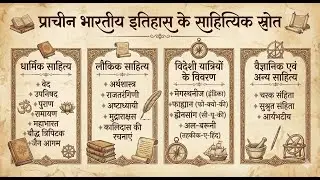 प्राचीन भारतीय इतिहास के साहित्यिक स्रोत
धार्मिक साहित्य
• वेद
• उपनिषद
• पुराण
• रामायण
• महाभारत
• बौद्ध त्रिपिटक
• जैन आगम
लौकिक साहित्य
• अर्थशास्त्र
• राजतरंगिणी
• अष्टाध्यायी
• मुद्राराक्षस
• कालिदास की
रचनाएं
विदेशी यात्रियों
के विवरण
• मेगस्थनीज (इंडिका)
• फाह्यान (फो-क्यो-की)
• ह्वेनसांग (सी-यू-की)
• अल-बरूनी
(तहकीक-ए-हिंद)
वैज्ञानिक एवं
अन्य साहित्य
• चरक संहिता
• सुश्रुत संहिता
• आर्यभटीय